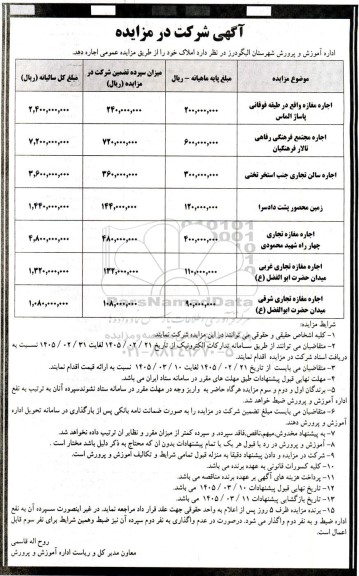 آگهی شرکت در مزایده
اداره آموزش و پرورش شهرستان الیگودرز در نظر دارد املاک خود را از طریق مزایده عمومی اجاره دهد.
موضوع مزایده
مبلغ پایه ماهیانه - ریال
میزان سپرده تضمین شرکت در مزایده (ریال)
مبلغ کل سالیانه (ریال)
اجاره مغازه واقع در طبقه فوقانی پاساژ الماس
۲۰۰,۰۰۰,۰۰۰
۲۴۰,۰۰۰,۰۰۰
۲,۴۰۰,۰۰۰,۰۰۰
اجاره مجتمع فرهنگی رفاهی تالار فرهنگیان
۶۰۰,۰۰۰,۰۰۰
۷۲۰,۰۰۰,۰۰۰
۷,۲۰۰,۰۰۰,۰۰۰
اجاره سالن تجاری جنب استخر تختی
۳۰۰,۰۰۰,۰۰۰
۳۶۰,۰۰۰,۰۰۰
۳,۶۰۰,۰۰۰,۰۰۰
زمین محصور پشت دادسرا
۱۲۰,۰۰۰,۰۰۰
۱۴۴,۰۰۰,۰۰۰
۱,۴۴۰,۰۰۰,۰۰۰
اجاره مغازه تجاری چهار راه شهید محمودی
۴۰۰,۰۰۰,۰۰۰
۴۸۰,۰۰۰,۰۰۰
۴,۸۰۰,۰۰۰,۰۰۰
اجاره مغازه تجاری غربی میدان حضرت ابوالفضل (ع)
۱۱۰,۰۰۰,۰۰۰
۱۳۲,۰۰۰,۰۰۰
۱,۳۲۰,۰۰۰,۰۰۰
اجاره مغازه تجاری شرقی میدان حضرت ابوالفضل (ع)
۹۰,۰۰۰,۰۰۰
۱۰۸,۰۰۰,۰۰۰
۱,۰۸۰,۰۰۰,۰۰۰
شرایط مزایده:
۱- کلیه اشخاص حقیقی و حقوقی می توانند در این مزایده شرکت نمایند.
۲- متقاضیان می توانند از طریق سامانه تدارکات الکترونیک از تاریخ ۲۱ / ۰۲ / ۱۴۰۵ لغایت ۳۱ / ۰۲ / ۱۴۰۵ نسبت به
دریافت اسناد شرکت در مزایده اقدام نمایند.
۳- متقاضیان می بایست از تاریخ ۲۱ / ۰۲ / ۱۴۰۵ لغایت ۱۰ / ۰۳ / ۱۴۰۵ نسبت به ارائه قیمت اقدام نمایند.
۴- مهلت نهایی قبول پیشنهادات طبق مهلت های مقرر در سامانه ستاد ایران می باشد.
۵- برندگان اول و دوم و سوم مزایده هرگاه حاضر به واریز وجه در مهلت مقرر در سامانه ستاد نشوند سپرده آنان به ترتیب به نفع
اداره آموزش و پرورش ضبط خواهد شد.
۶- متقاضیان می بایست مبلغ تضمین شرکت در مزایده را به صورت ضمانت نامه بانکی پس از بارگذاری در سامانه تحویل اداره
آموزش و پرورش دهند.
۷- به پیشنهاد مخدوش، مبهم، ناقص، فاقد سپرده, و سپرده کمتر از میزان مقرر و نظایر آن ترتیب داده نخواهد شد.
۸- آموزش و پرورش در رد یا قبول هر یک یا تمام پیشنهادات بدون آن که محتاج به ذکر دلیل باشد مختار است .
۹- شرکت در مزایده و دادن پیشنهاد دقیقا به منزله قبول تمامی شرایط و تکالیف آموزش و پرورش است.
۱۰- کلیه کسورات قانونی به عهده برنده می باشد.
۱۱- پرداخت هزینه های آگهی بر عهده برنده مناقصه می باشد.
۱۲- تاریخ نهایی قبول پیشنهادات ۱۰ / ۰۳ / ۱۴۰۵ می باشد.
۱۳- تاریخ بازگشایی پیشنهادات ۱۱ / ۰۳ / ۱۴۰۵ می باشد.
۱۵- برنده مزایده ظرف ۵ روز پس از اعلام به واحد حقوقی جهت عقد قرار داد مراجعه نماید. در غیر اینصورت سپرده آن به نفع
اداره ضبط و به نفر دوم واگذار می شود. درصورت در عدم واگذاری به نفر دوم سپرده آن نیز ضبط وهمین شرایط برای نفر سوم قابل
اعمال است.
روح اله قاسمی
معاون مدیر کل و ریاست اداره آموزش و پرورش